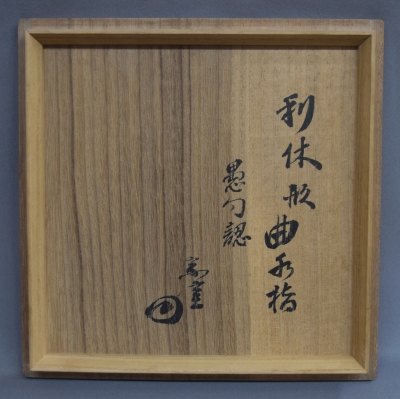 利休形曲水指
愚句認
宗室